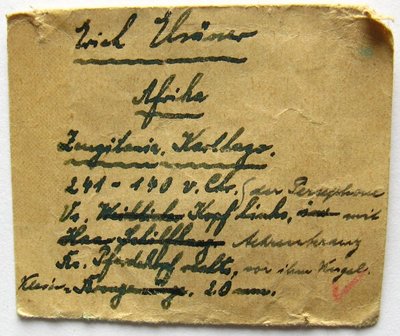 Erich
Afrika
Zeugitania. Karthago.
241 - 140 v. Chr. (der Persephone
Vs. Weibliche Kopf links, mit
Haar Ährenkranz
Rs. Pferdekopf rechts, vor ihm Kugel.
Klein- Bronze 20 mm.